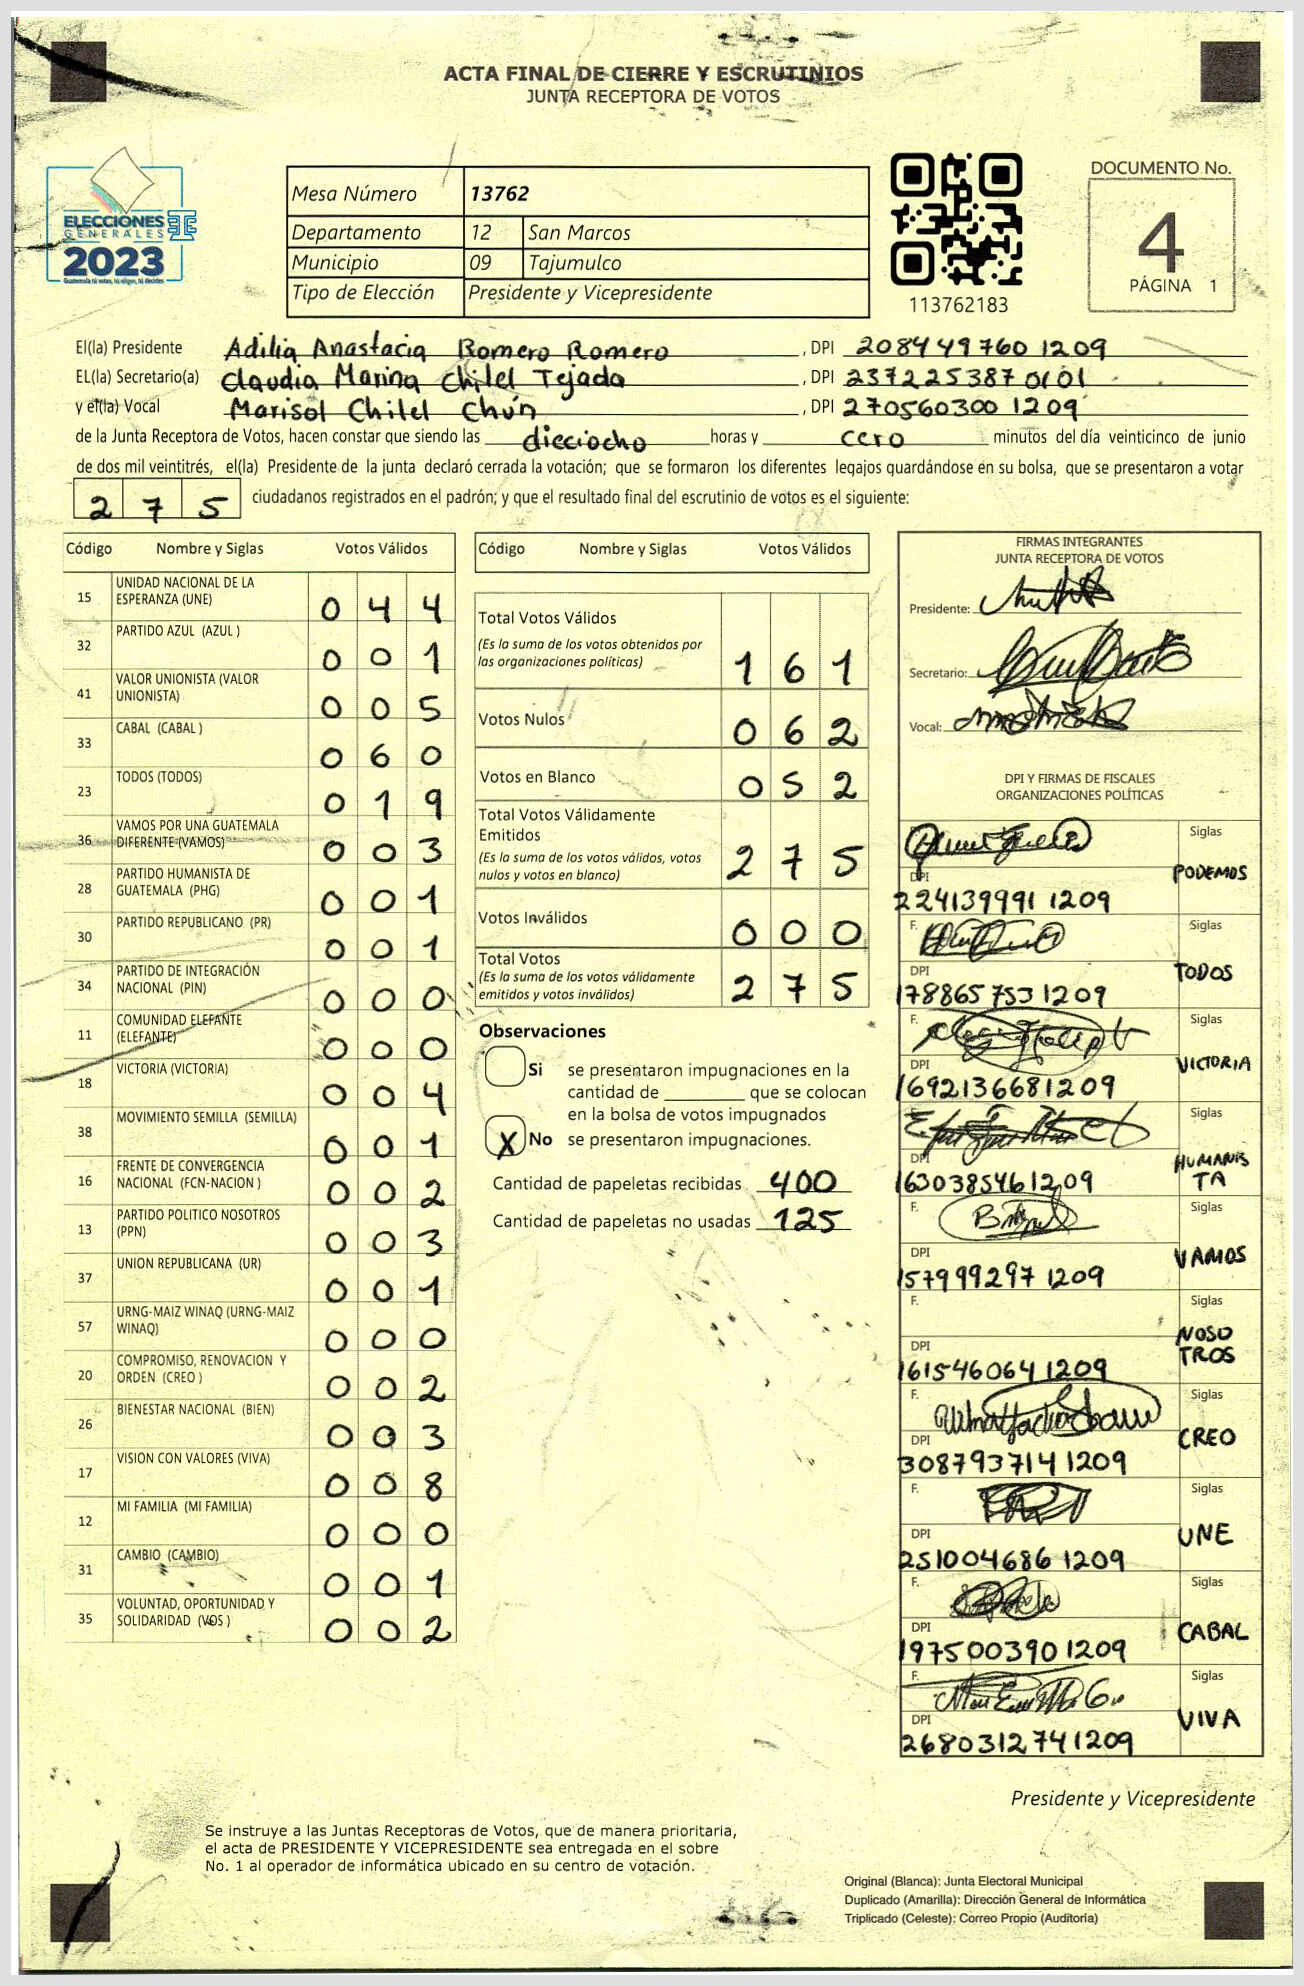 ACTA FINAL DE CIERRE Y ESCRUTINIOS
JUNTA RECEPTORA DE VOTOS
ELECCIONES
GENERALES
2023
Guatemala tú votas, tú eliges, tú decides
Mesa Número 13762
Departamento 12 San Marcos
Municipio 09 Tajumulco
Tipo de Elección Presidente y Vicepresidente
113762183
DOCUMENTO No.
4
PÁGINA 1
El(la) Presidente Adilia Anastacia Romero Romero, DPI 208449760 1209
EL(la) Secretario(a) Claudia Marina Chilel Tejada, DPI 237225387 0101
y el(la) Vocal Marisol Chilel Chún, DPI 270560300 1209
de la Junta Receptora de Votos, hacen constar que siendo las dieciocho horas y cero minutos del día veinticinco de junio
de dos mil veintitrés, el(la) Presidente de la junta declaró cerrada la votación; que se formaron los diferentes legajos quardándose en su bolsa, que se presentaron a votar
275 ciudadanos registrados en el padrón; y que el resultado final del escrutinio de votos es el siguiente:
Código Nombre y Siglas Votos Válidos
15 UNIDAD NACIONAL DE LA ESPERANZA (UNE) 044
32 PARTIDO AZUL (AZUL ) 001
41 VALOR UNIONISTA (VALOR UNIONISTA) 005
33 CABAL (CABAL ) 060
23 TODOS (TODOS) 019
36 VAMOS POR UNA GUATEMALA DIFERENTE (VAMOS) 003
28 PARTIDO HUMANISTA DE GUATEMALA (PHG) 001
30 PARTIDO REPUBLICANO (PR) 001
34 PARTIDO DE INTEGRACIÓN NACIONAL (PIN) 000
11 COMUNIDAD ELEFANTE (ELEFANTE) 000
18 VICTORIA (VICTORIA) 004
38 MOVIMIENTO SEMILLA (SEMILLA) 001
16 FRENTE DE CONVERGENCIA NACIONAL (FCN-NACION ) 002
13 PARTIDO POLITICO NOSOTROS (PPN) 003
37 UNION REPUBLICANA (UR) 001
57 URNG-MAIZ WINAQ (URNG-MAIZ WINAQ) 000
20 COMPROMISO, RENOVACION Y ORDEN (CREO ) 002
26 BIENESTAR NACIONAL (BIEN) 003
17 VISION CON VALORES (VIVA) 008
12 MI FAMILIA (MI FAMILIA) 000
31 CAMBIO (CAMBIO) 001
35 VOLUNTAD, OPORTUNIDAD Y SOLIDARIDAD (VOS ) 002
Código Nombre y Siglas Votos Válidos
Total Votos Válidos
(Es la suma de los votos obtenidos por
las organizaciones políticas) 161
Votos Nulos 062
Votos en Blanco 052
Total Votos Válidamente
Emitidos
(Es la suma de los votos válidos, votos
nulos y votos en blanco) 275
Votos Inválidos 000
Total Votos
(Es la suma de los votos válidamente
emitidos y votos inválidos) 275
Observaciones
Si se presentaron impugnaciones en la
cantidad de ________ que se colocan
en la bolsa de votos impugnados
X No se presentaron impugnaciones.
Cantidad de papeletas recibidas 400
Cantidad de papeletas no usadas 125
FIRMAS INTEGRANTES
JUNTA RECEPTORA DE VOTOS
Presidente:
Secretario:
Vocal:
DPI Y FIRMAS DE FISCALES
ORGANIZACIONES POLÍTICAS
Siglas
PODEMOS
DPI
224139991 1209
F. Siglas
TODOS
DPI
178865753 1209
F. Siglas
VICTORIA
DPI
169213668 1209
F. Siglas
HUMANIS
TA
DPI
163038546 1209
F. Siglas
VAMOS
DPI
157999297 1209
F. Siglas
NOSO
TROS
DPI
161546064 1209
F. Siglas
CREO
DPI
308793714 1209
F. Siglas
UNE
DPI
251004686 1209
F. Siglas
CABAL
DPI
197500390 1209
F. Siglas
VIVA
DPI
268031274 1209
Presidente y Vicepresidente
Se instruye a las Juntas Receptoras de Votos, que de manera prioritaria,
el acta de PRESIDENTE Y VICEPRESIDENTE sea entregada en el sobre
No. 1 al operador de informática ubicado en su centro de votación.
Original (Blanca): Junta Electoral Municipal
Duplicado (Amarilla): Dirección General de Informática
Triplicado (Celeste): Correo Propio (Auditoría)